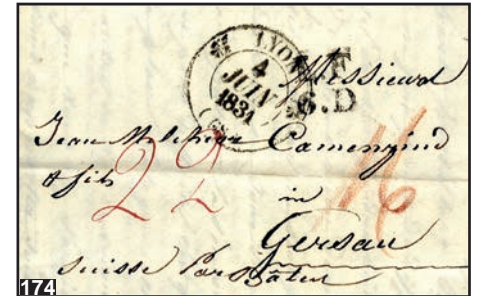 LYON
4
JUIN
1831
(68)
F
S.D
Messieurs
Jean Melchior Camenzind
& fils
22
in
16
Gersau
Suisse Par Bâle
174